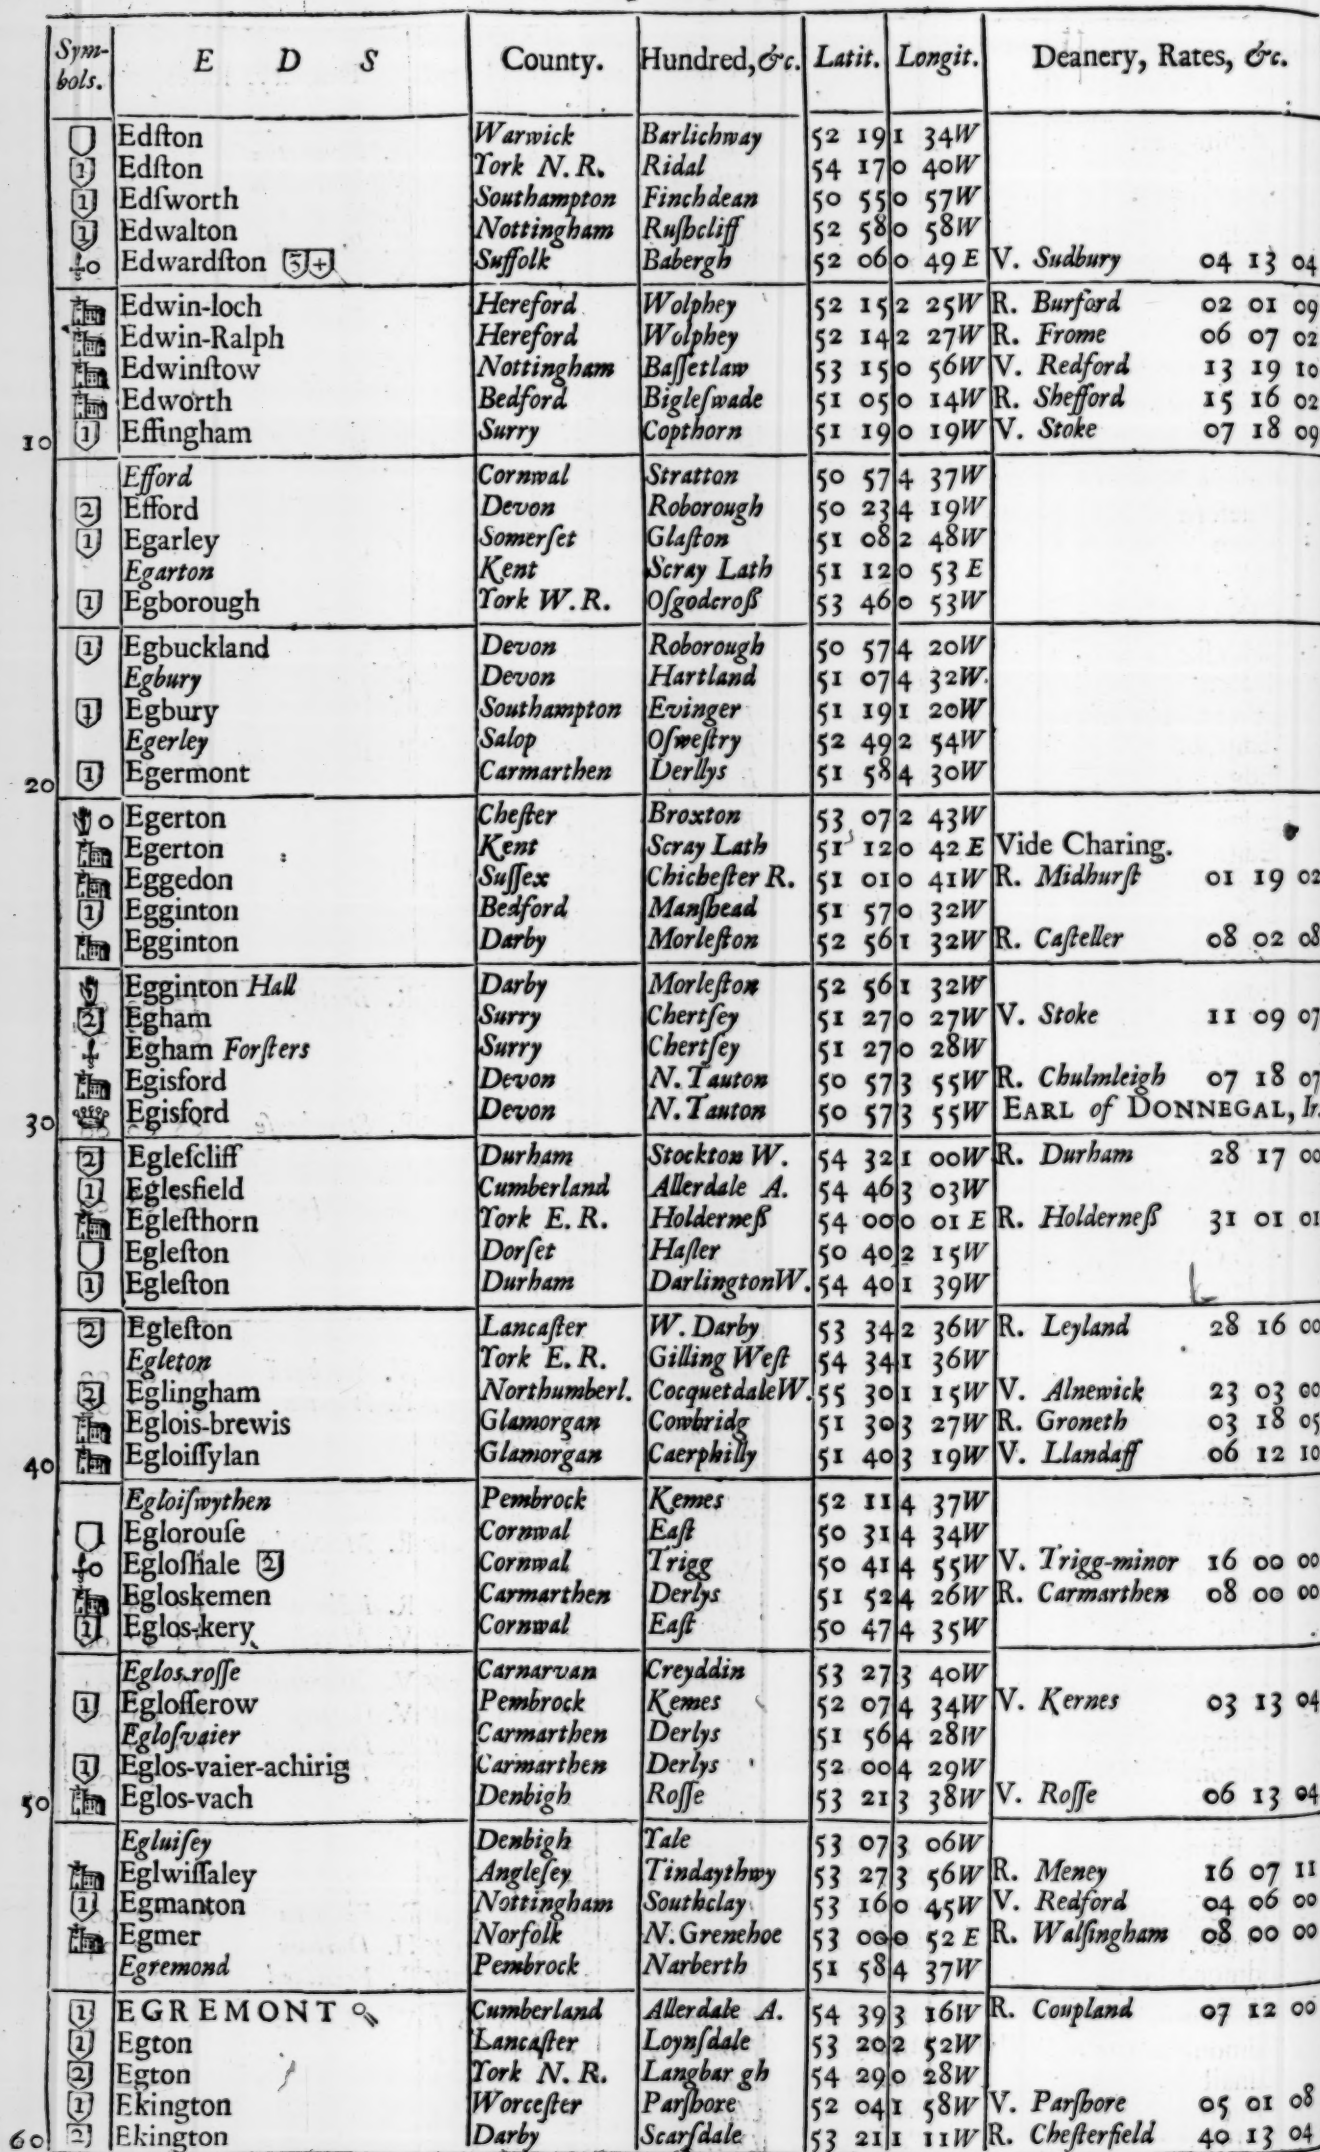 Sym-bols. E D S County. Hundred, &c. Latit. Longit. Deanery, Rates, &c.
Edſton Warwick Barlichway 52 19 1 34W
1 Edſton York N.R. Ridal 54 17 0 40W
1 Edſworth Southampton Finchdean 50 55 0 57W
1 Edwalton Nottingham Ruſhcliff 52 58 0 58W
Edwardſton 3 + Suffolk Babergh 52 06 0 49 E V. Sudbury 04 13 04
Edwin-loch Hereford Wolphey 52 15 2 25W R. Burford 02 01 09
Edwin-Ralph Hereford Wolphey 52 14 2 27W R. Frome 06 07 02
Edwinſtow Nottingham Baſſetlaw 53 15 0 56W V. Redford 13 19 10
Edworth Bedford Bigleſwade 51 05 0 14W R. Shefford 15 16 02
10 1 Effingham Surry Copthorn 51 19 0 19W V. Stoke 07 18 09
Efford Cornwal Stratton 50 57 4 37W
2 Efford Devon Roborough 50 23 4 19W
1 Egarley Somerſet Glaſton 51 08 2 48W
Egarton Kent Scray Lath 51 12 0 53 E
1 Egborough York W.R. Oſgodcroß 53 46 0 53W
1 Egbuckland Devon Roborough 50 57 4 20W
Egbury Devon Hartland 51 07 4 32W
1 Egbury Southampton Evinger 51 19 1 20W
Egerley Salop Oſweſtry 52 49 2 54W
20 1 Egermont Carmarthen Derllys 51 58 4 30W
Egerton Cheſter Broxton 53 07 2 43W
Egerton Kent Scray Lath 51 12 0 42 E Vide Charing.
Eggedon Suſſex Chicheſter R. 51 01 0 41W R. Midhurſt 01 19 02
1 Egginton Bedford Manſhead 51 57 0 32W
Egginton Darby Morleſton 52 56 1 32W R. Caſteller 08 02 08
Egginton Hall Darby Morleſton 52 56 1 32W
2 Egham Surry Chertſey 51 27 0 27W V. Stoke 11 09 07
Egham Forſters Surry Chertſey 51 27 0 28W
Egisford Devon N. Tauton 50 57 3 55W R. Chulmleigh 07 18 07
30 Egisford Devon N. Tauton 50 57 3 55W EARL of DONNEGAL, Ir.
2 Egleſcliff Durham Stockton W. 54 32 1 00W R. Durham 28 17 00
1 Eglesfield Cumberland Allerdale A. 54 46 3 03W
Egleſthorn York E.R. Holderneß 54 00 0 01 E R. Holderneß 31 01 01
Egleſton Dorſet Haſler 50 40 2 15W
1 Egleſton Durham DarlingtonW. 54 40 1 39W
2 Egleſton Lancaſter W. Darby 53 34 2 36W R. Leyland 28 16 00
Egleton York E.R. Gilling Weſt 54 34 1 36W
2 Eglingham Northumberl. CocquetdaleW. 55 30 1 15W V. Alnewick 23 03 00
Eglois-brewis Glamorgan Cowbridg 51 30 3 27W R. Groneth 03 18 05
40 Egloiſſylan Glamorgan Caerphilly 51 40 3 19W V. Llandaff 06 12 10
Egloiſwythen Pembrock Kemes 52 11 4 37W
Eglorouſe Cornwal Eaſt 50 31 4 34W
Egloſhale 2 Cornwal Trigg 50 41 4 55W V. Trigg-minor 16 00 00
Egloskemen Carmarthen Derlys 51 52 4 26W R. Carmarthen 08 00 00
1 Eglos-kery Cornwal Eaſt 50 47 4 35W
Eglos-roſſe Carnarvan Creyddin 53 27 3 40W
1 Egloſſerow Pembrock Kemes 52 07 4 34W V. Kernes 03 13 04
Egloſvaier Carmarthen Derlys 51 56 4 28W
1 Eglos-vaier-achirig Carmarthen Derlys 52 00 4 29W
50 Eglos-vach Denbigh Roſſe 53 21 3 38W V. Roſſe 06 13 04
Egluiſey Denbigh Yale 53 07 3 06W
Eglwiſſaley Angleſey Tindaythwy 53 27 3 56W R. Meney 16 07 11
1 Egmanton Nottingham Southclay 53 16 0 45W V. Redford 04 06 00
Egmer Norfolk N. Grenehoe 53 00 0 52 E R. Walſingham 08 00 00
Egremond Pembrock Narberth 51 58 4 37W
1 EGREMONT Cumberland Allerdale A. 54 39 3 16W R. Coupland 07 12 00
1 Egton Lancaſter Loynſdale 53 20 2 52W
2 Egton York N.R. Langbar gh 54 29 0 28W
1 Ekington Worceſter Parſhore 52 04 1 58W V. Parſhore 05 01 08
60 2 Ekington Darby Scarſdale 53 21 1 11W R. Cheſterfield 40 13 04